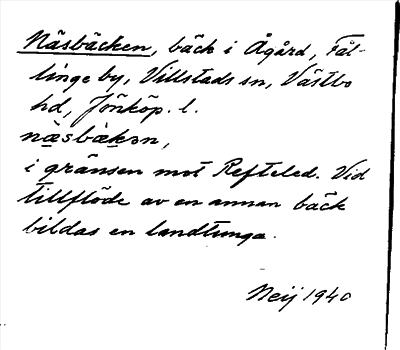 Näsbäcken, bäck i Ågård, Fål-
linge by, Villstads sn, Västbo
hd, Jönköp. l.
næsbækən,
i gränsen mot Refteled. Vid
tillflöde av en annan bäck
bildas en landtunga.
Neij 1940